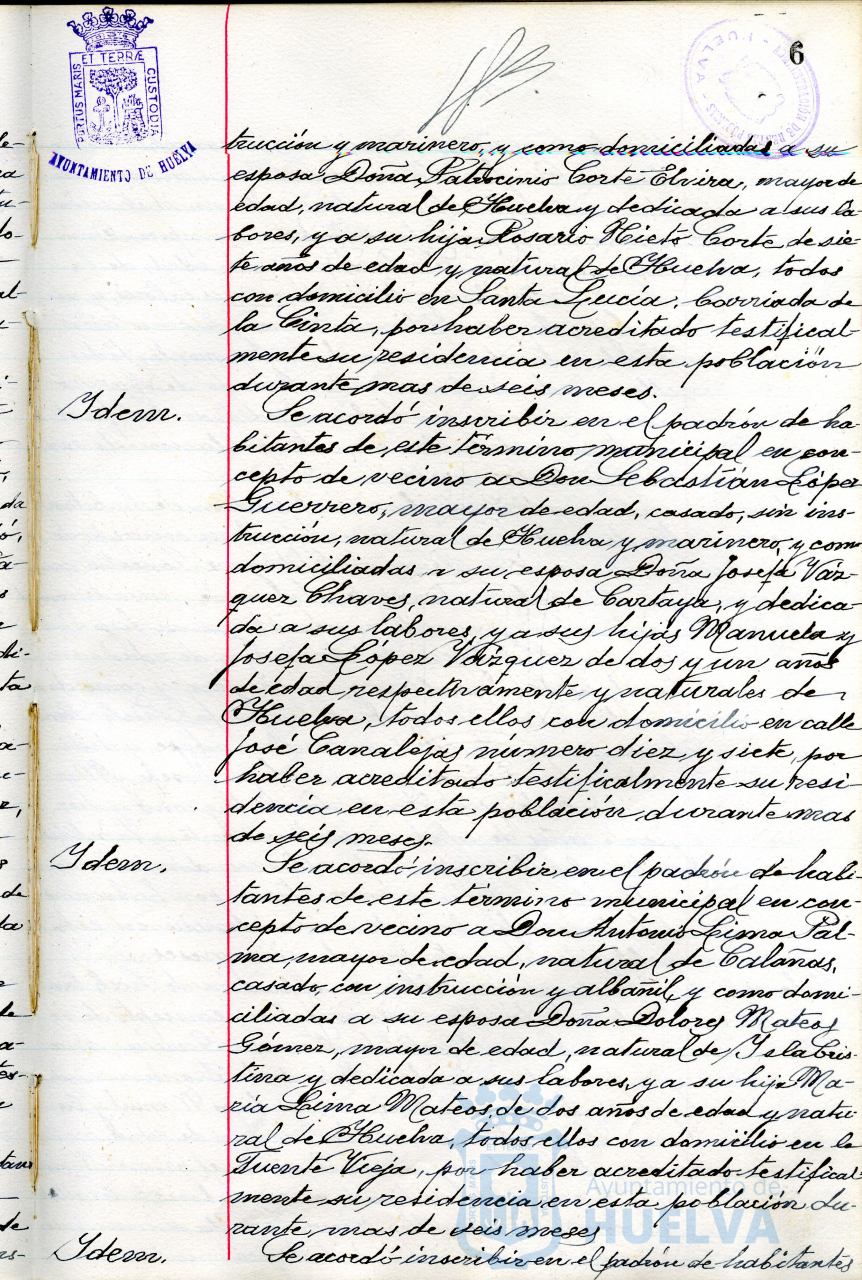 6
PORTUS MARIS
ET TERRÆ
CUSTODIA
AYUNTAMIENTO DE HUELVA
trucción y marinero, y como domiciliadas a su
esposa Doña Patrocinio Corte Elvira, mayor de
edad, natural de Huelva y dedicada a sus la-
bores, y a su hija Rosario Nieto Corte de sie-
te años de edad y natural de Huelva, todos
con domicilio en Santa Lucía, barriada de
la Cinta, por haber acreditado testifical-
mente su residencia en esta población
durante mas de seis meses.
Idem.
Se acordó inscribir en el padrón de ha-
bitantes de este término municipal en con-
cepto de vecino a Don Sebastián López
Guerrero, mayor de edad, casado, sin ins-
trucción, natural de Huelva y marinero, y como
domiciliadas a su esposa Doña Josefa Váz-
quez Chaves, natural de Cartaya, y dedica-
da a sus labores, y a sus hijas Manuela y
Josefa López Vázquez de dos y un años
de edad respectivamente y naturales de
Huelva, todos ellos con domicilio en calle
José Canalejas número diez y siete, por
haber acreditado testificalmente su resi-
dencia en esta población, durante mas
de seis meses.
Idem.
Se acordó inscribir en el padrón de habi-
tantes de este término municipal en con-
cepto de vecino a Don Antonio Lima Pal-
ma, mayor de edad, natural de Calañas,
casado, con instrucción y albañil, y como domi-
ciliadas a su esposa Doña Dolores Mateos
Gómez, mayor de edad, natural de Isla Cris-
tina y dedicada a sus labores, y a su hija Ma-
ría Lima Mateos, de dos años de edad y natu-
ral de Huelva, todos ellos con domicilio en la
Fuente Vieja, por haber acreditado testifical-
mente su residencia en esta población du-
rante mas de seis meses
Idem.
Se acordó inscribir en el padrón de habitantes
Ayuntamiento de
HUELVA